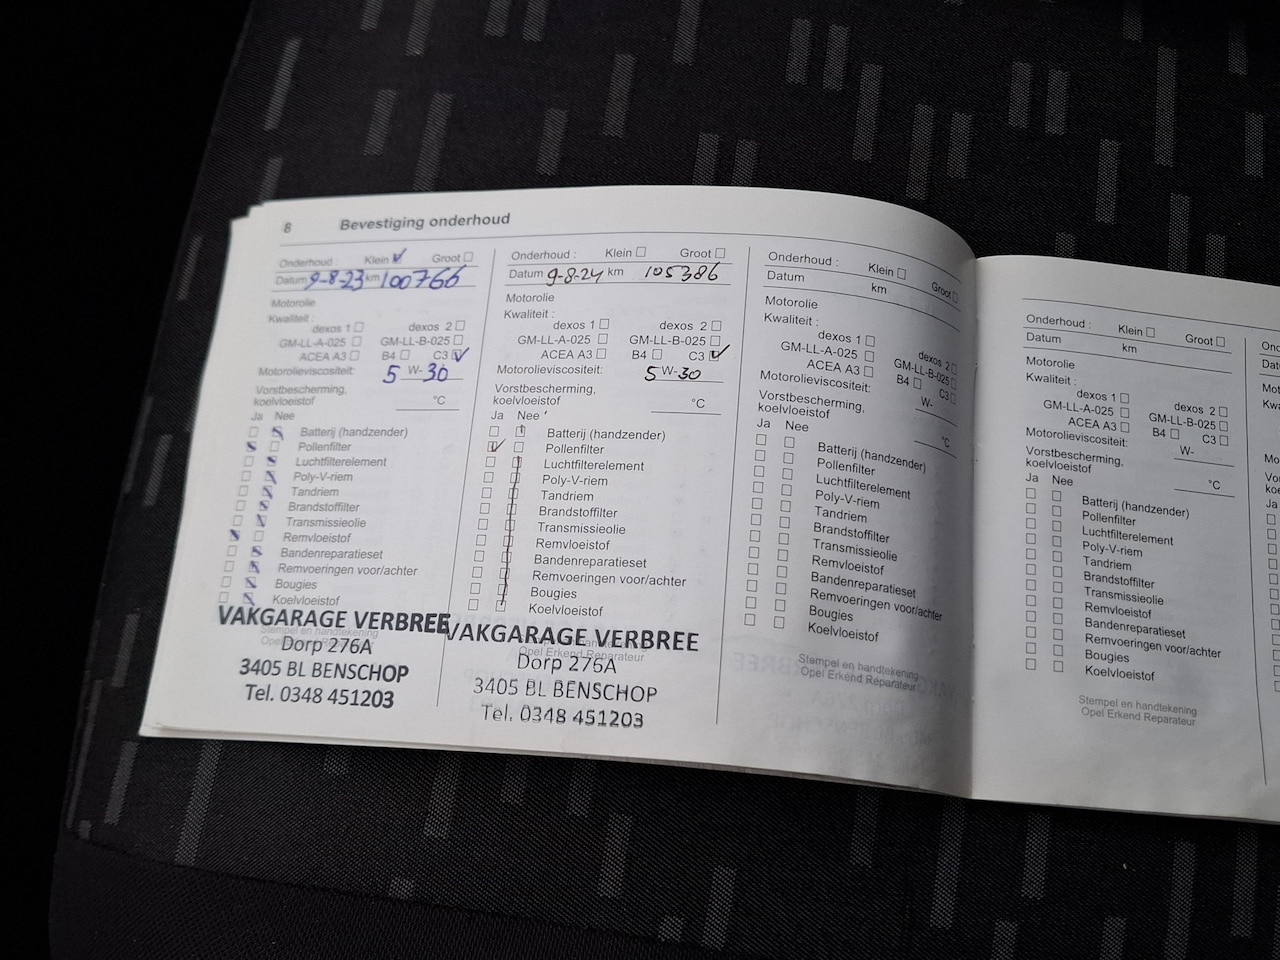 8 Bevestiging onderhoud
Onderhoud : Klein Groot
Datum 9-8-23 km 100766
Motorolie
Kwaliteit :
dexos 1 dexos 2
GM-LL-A-025 GM-LL-B-025
ACEA A3 B4 C3
Motorolieviscositeit: 5 W- 30
Vorstbescherming,
koelvloeistof °C
Ja Nee
Batterij (handzender)
Pollenfilter
Luchtfilterelement
Poly-V-riem
Tandriem
Brandstoffilter
Transmissieolie
Remvloeistof
Bandenreparatieset
Remvoeringen voor/achter
Bougies
Koelvloeistof
VAKGARAGE VERBREE
Dorp 276A
3405 BL BENSCHOP
Tel. 0348 451203
Onderhoud : Klein Groot
Datum 9-8-24 km 105386
Motorolie
Kwaliteit :
dexos 1 dexos 2
GM-LL-A-025 GM-LL-B-025
ACEA A3 B4 C3
Motorolieviscositeit: 5 W- 30
Vorstbescherming,
koelvloeistof °C
Ja Nee
Batterij (handzender)
Pollenfilter
Luchtfilterelement
Poly-V-riem
Tandriem
Brandstoffilter
Transmissieolie
Remvloeistof
Bandenreparatieset
Remvoeringen voor/achter
Bougies
Koelvloeistof
VAKGARAGE VERBREE
Opel Erkend Reparateur
Dorp 276A
3405 BL BENSCHOP
Tel. 0348 451203
Onderhoud : Klein Groot
Datum km
Motorolie
Kwaliteit :
dexos 1 dexos 2
GM-LL-A-025 GM-LL-B-025
ACEA A3 B4 C3
Motorolieviscositeit: W-
Vorstbescherming,
koelvloeistof °C
Ja Nee
Batterij (handzender)
Pollenfilter
Luchtfilterelement
Poly-V-riem
Tandriem
Brandstoffilter
Transmissieolie
Remvloeistof
Bandenreparatieset
Remvoeringen voor/achter
Bougies
Koelvloeistof
Stempel en handtekening
Opel Erkend Reparateur
Onderhoud : Klein Groot
Datum km
Motorolie
Kwaliteit :
dexos 1 dexos 2
GM-LL-A-025 GM-LL-B-025
ACEA A3 B4 C3
Motorolieviscositeit: W-
Vorstbescherming,
koelvloeistof °C
Ja Nee
Batterij (handzender)
Pollenfilter
Luchtfilterelement
Poly-V-riem
Tandriem
Brandstoffilter
Transmissieolie
Remvloeistof
Bandenreparatieset
Remvoeringen voor/achter
Bougies
Koelvloeistof
Stempel en handtekening
Opel Erkend Reparateur